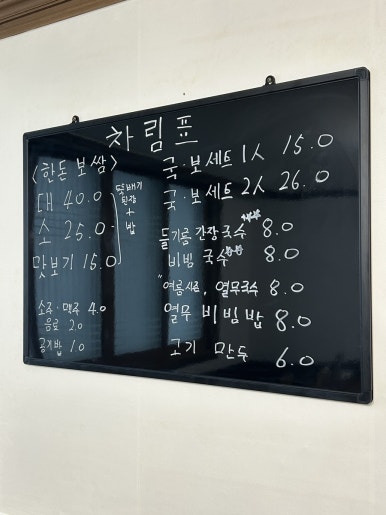 차림표
<한돈 보쌈>
대 40.0
소 25.0
맛보기 15.0
뚝배기
된장
+
밥
소주·맥주 4.0
음료 2.0
공기밥 1.0
국·보세트 1人 15.0
국·보세트 2人 26.0
들기름 간장국수 8.0
비빔 국수 8.0
"여름시즌, 열무국수 8.0
열무 비빔밥 8.0
고기 만두 6.0